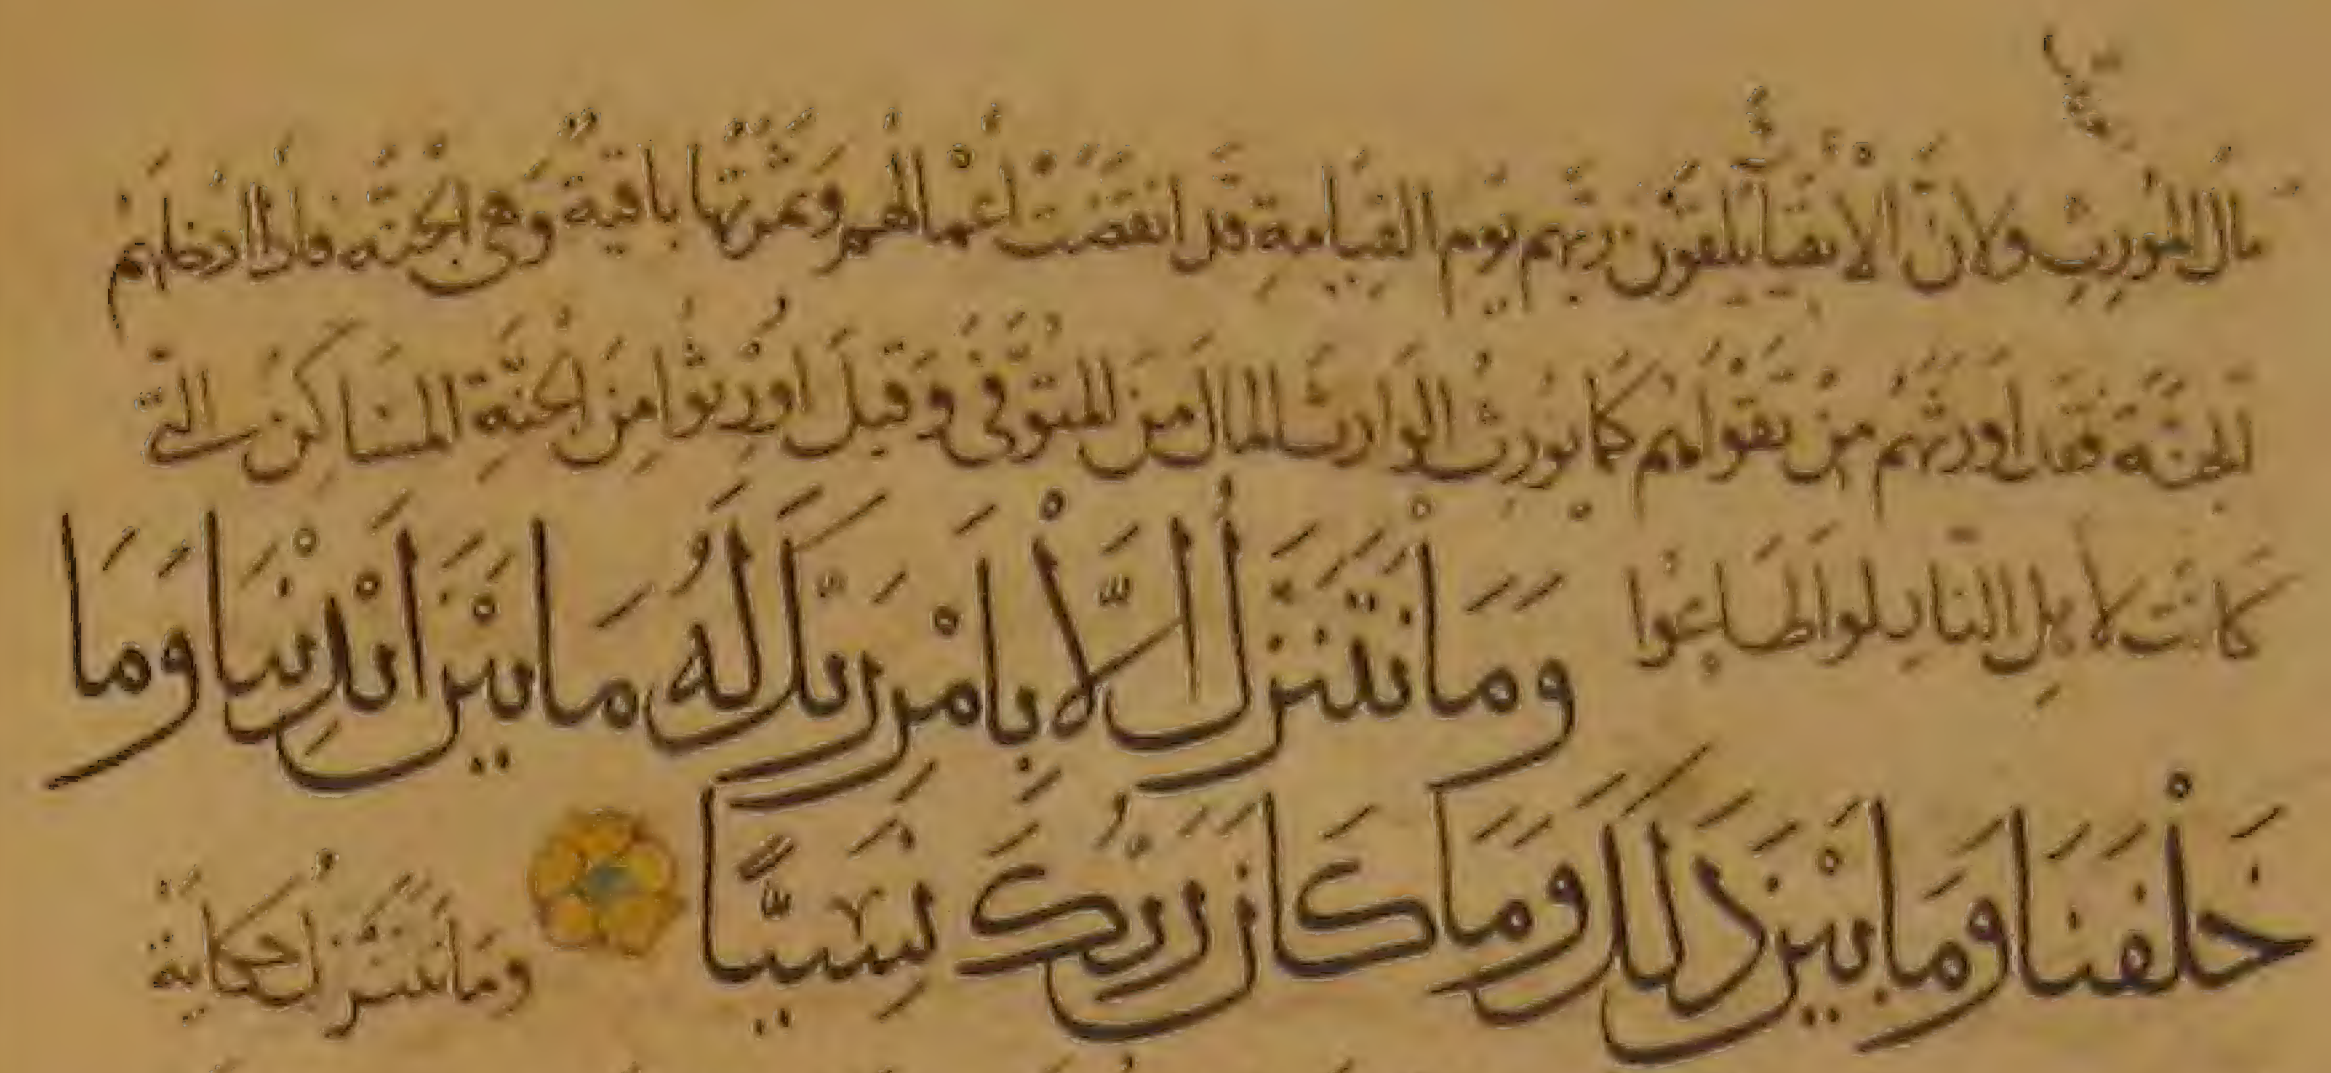 مَالَ المُورِثِ وَلِأَنَّ الْأَتْقِيَاءَ يَلْقَوْنَ رَبَّهُمْ يَوْمَ القِيَامَةِ قَدِ انقَضَتْ أَعْمَالُهُمْ وَثَمَرَتُهَا بَاقِيَةٌ وَهِيَ الْجَنَّةُ فَإِذَا أَدْخَلَهُمْ
الجَنَّةَ فَقَدْ أَوْرَثَهُمْ مِنْ تَقْوَاهُمْ كَمَا يُورَثُ الوَارِثُ المَالَ مِنَ المُتَوَفَّى وَقِيلَ أُورِثُوا مِنَ الْجَنَّةِ المَسَاكِنَ الَّتِي
كَانَتْ لِأَهْلِ النَّارِ لَوْ أَطَاعُوا وَمَا نَتَنَزَّلُ إِلَّا بِأَمْرِ رَبِّكَ لَهُ مَا بَيْنَ أَيْدِيْنَا وَمَا
خَلْفَنَا وَمَا بَيْنَ ذَلِكَ وَمَا كَانَ رَبُّكَ نَسِيًّا وَمَا نَتَنَزَّلُ حِكَايَةُ